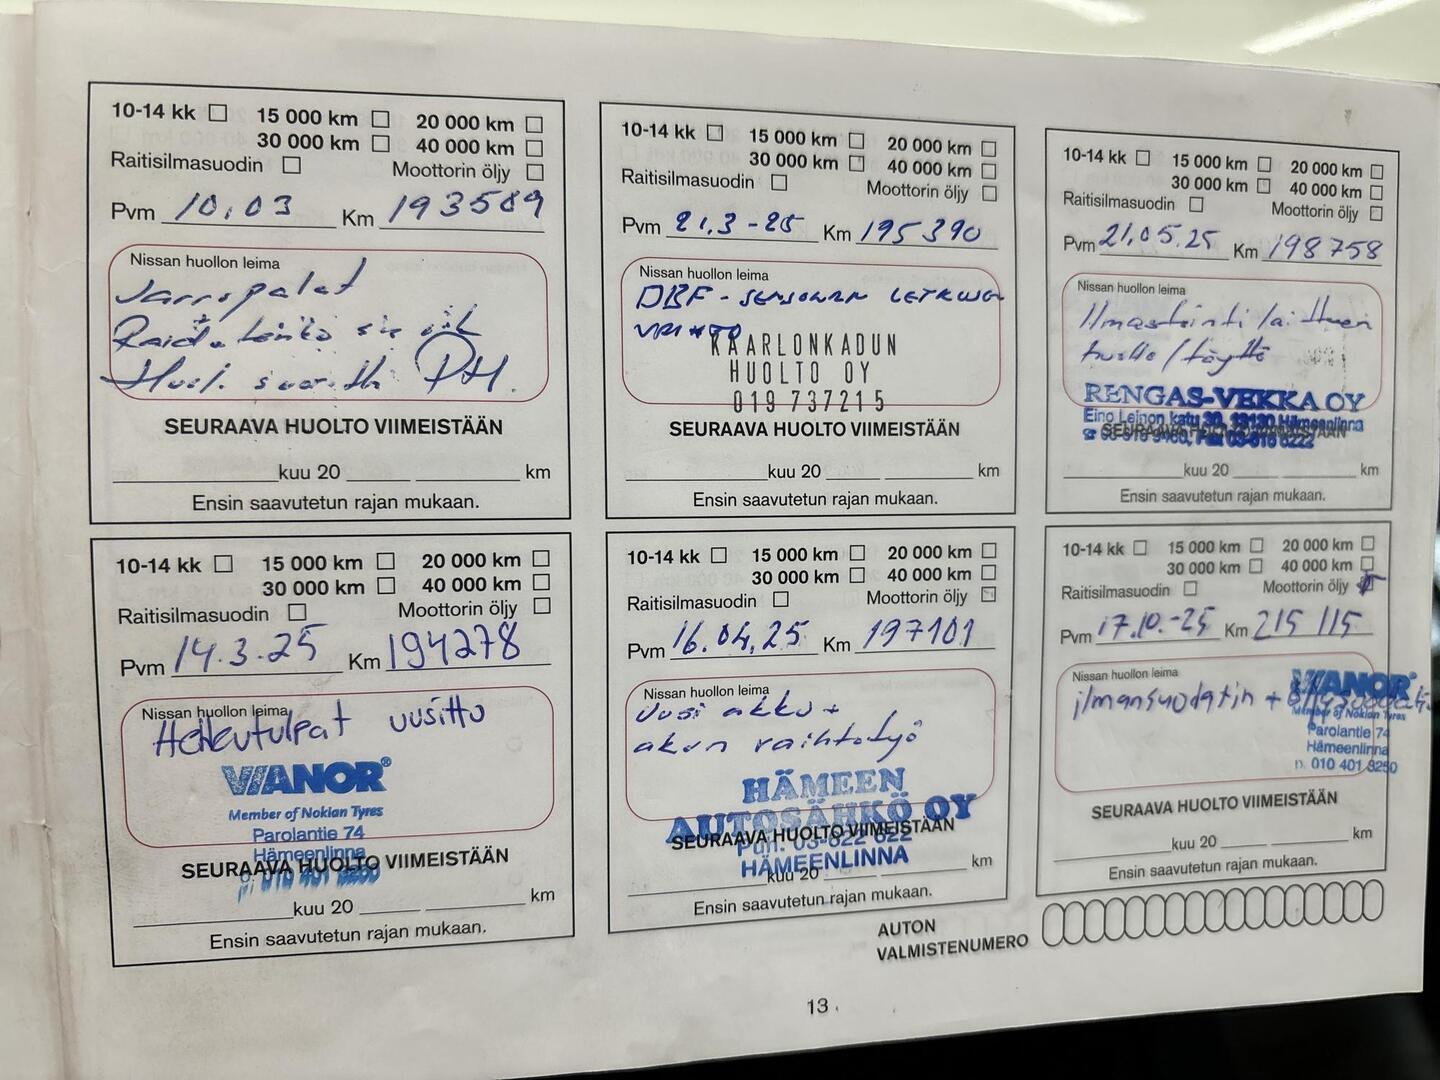 10-14 kk 15 000 km 20 000 km
30 000 km 40 000 km
Raitisilmasuodin Moottorin öljy
Pvm 10.03 Km 193589
Nissan huollon leima
Jarrupalat
SEURAAVA HUOLTO VIIMEISTÄÄN
kuu 20 km
Ensin saavutetun rajan mukaan.
10-14 kk 15 000 km 20 000 km
30 000 km 40 000 km
Raitisilmasuodin Moottorin öljy
Pvm 14.3.25 Km 194278
Nissan huollon leima
Hehkutulpat uusittu
VIANOR®
Member of Nokian Tyres
Parolantie 74
Hämeenlinna
p. 010 401 3250
SEURAAVA HUOLTO VIIMEISTÄÄN
kuu 20 km
Ensin saavutetun rajan mukaan.
10-14 kk 15 000 km 20 000 km
30 000 km 40 000 km
Raitisilmasuodin Moottorin öljy
Pvm 21.3-25 Km 195390
Nissan huollon leima
KAARLONKADUN
HUOLTO OY
019 737215
SEURAAVA HUOLTO VIIMEISTÄÄN
kuu 20 km
Ensin saavutetun rajan mukaan.
10-14 kk 15 000 km 20 000 km
30 000 km 40 000 km
Raitisilmasuodin Moottorin öljy
Pvm 16.04.25 Km 197101
Nissan huollon leima
Uusi akku +
akun vaihtotyö
HÄMEEN
AUTOSÄHKÖ OY
SEURAAVA HUOLTO VIIMEISTÄÄN
Puh. 03-622 622
HÄMEENLINNA
kuu 20 km
Ensin saavutetun rajan mukaan.
10-14 kk 15 000 km 20 000 km
30 000 km 40 000 km
Raitisilmasuodin Moottorin öljy
Pvm 21.05.25 Km 198758
Nissan huollon leima
Ilmastointilaitteen
huolto/täyttö
RENGAS-VEKKA OY
Eino Leinon katu 30, 13130 Hämeenlinna
SEURAAVA HUOLTO VIIMEISTÄÄN
kuu 20 km
Ensin saavutetun rajan mukaan.
10-14 kk 15 000 km 20 000 km
30 000 km 40 000 km
Raitisilmasuodin Moottorin öljy
Pvm 17.10.-25 Km 215 115
Nissan huollon leima
ilmansuodatin +
VIANOR®
Member of Nokian Tyres
Parolantie 74
Hämeenlinna
p. 010 401 3250
SEURAAVA HUOLTO VIIMEISTÄÄN
kuu 20 km
Ensin saavutetun rajan mukaan.
AUTON
VALMISTENUMERO
13